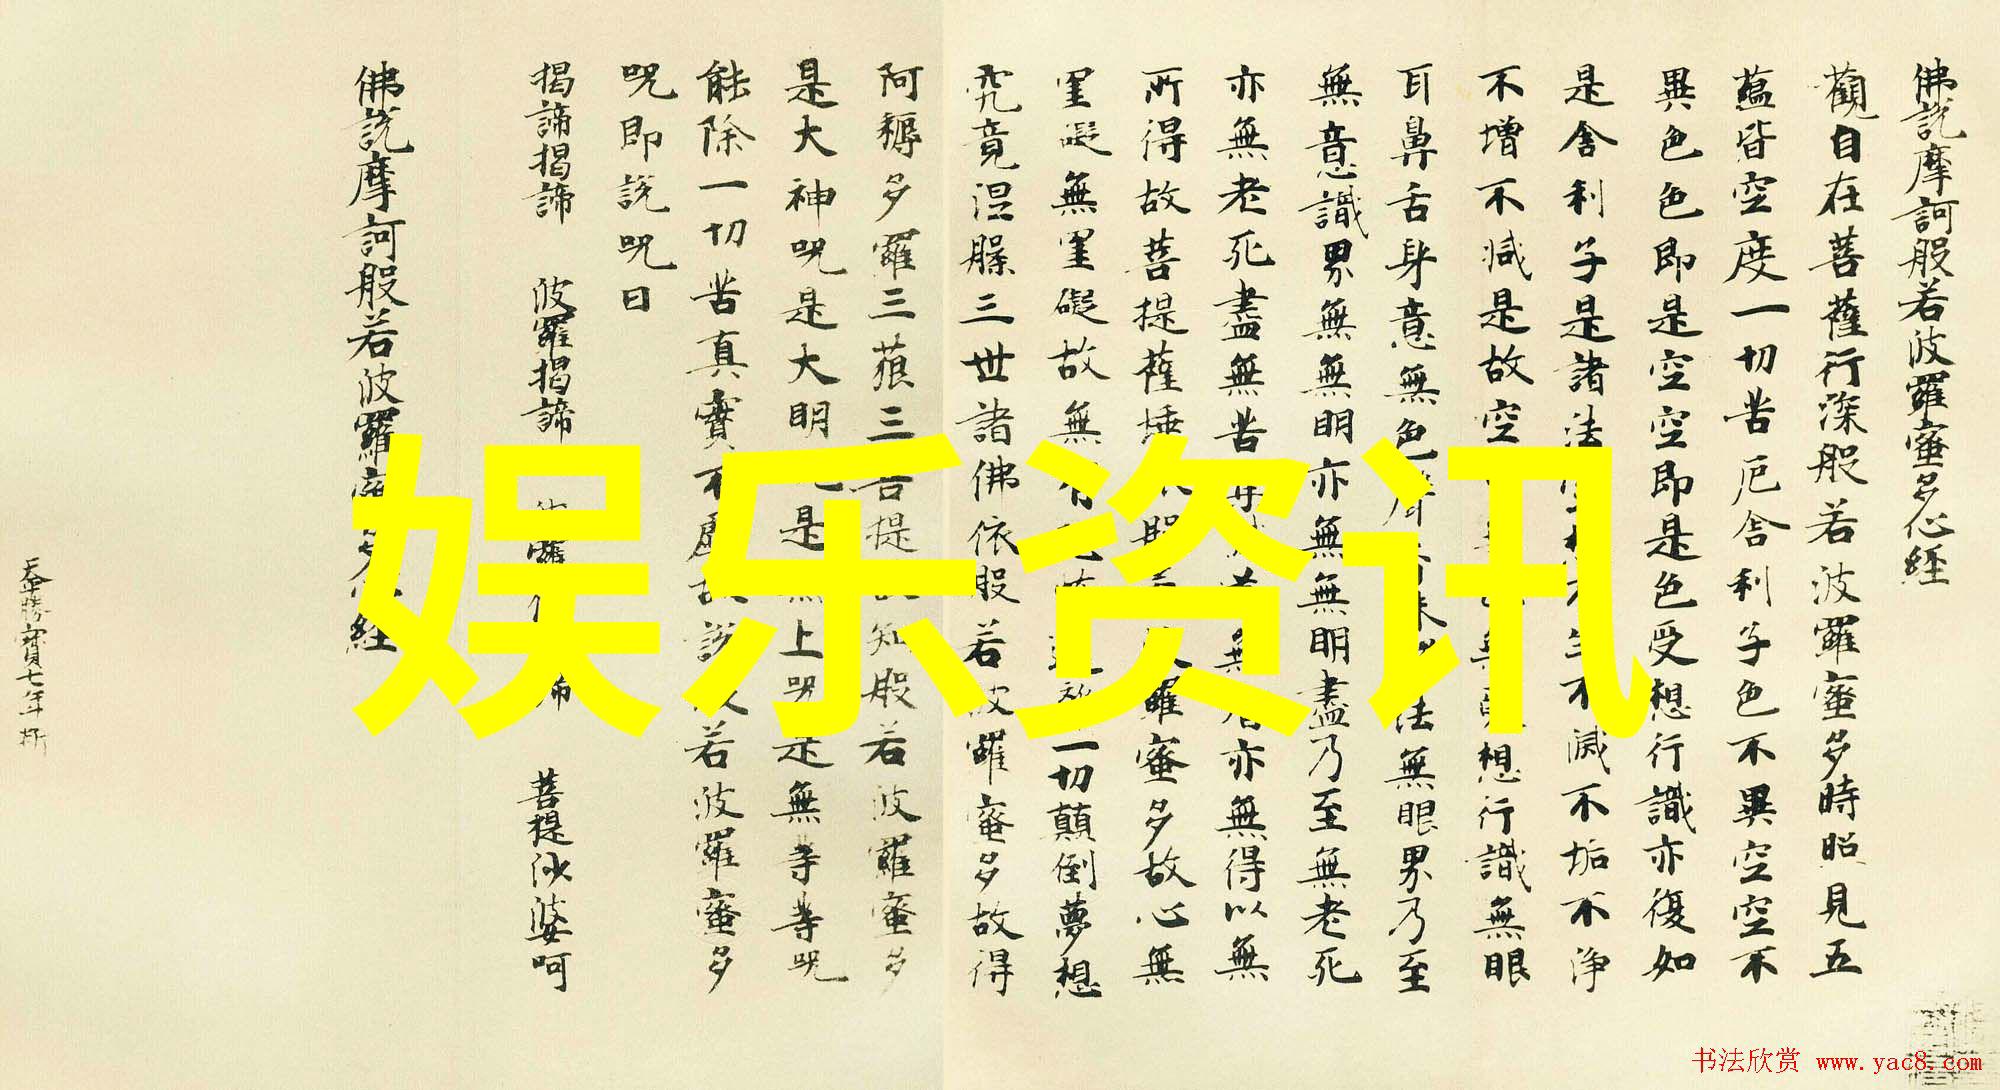 佛說摩訶般若波羅蜜多心經
觀自在菩薩行深般若波羅蜜多時照見五
蘊皆空度一切苦厄舍利子色不異空空不
異色色即是空空即是色受想行識亦復如
是舍利子是諸法不滅不垢不淨
不增不減是故空想行識無眼
耳鼻舌身意無色法無眼界乃至
無意識界無無明亦無無明盡乃至無老死
亦無老死盡無苦亦無得以無
所得故菩提薩埵羅蜜多故心無
罣礙無罣礙故無一切顛倒夢想
究竟涅槃三世諸佛依般若波羅蜜多故得
阿耨多羅三藐三提知般若波羅蜜多
是大神呪是大明是上呪是無等等呪
能除一切苦真實若波羅蜜多
呪即說呪曰
揭諦揭諦 波羅揭諦 菩提婆呵
佛說摩訶般若波羅經
勝寳七年
娱乐资讯
书法欣赏 www.yac8.com